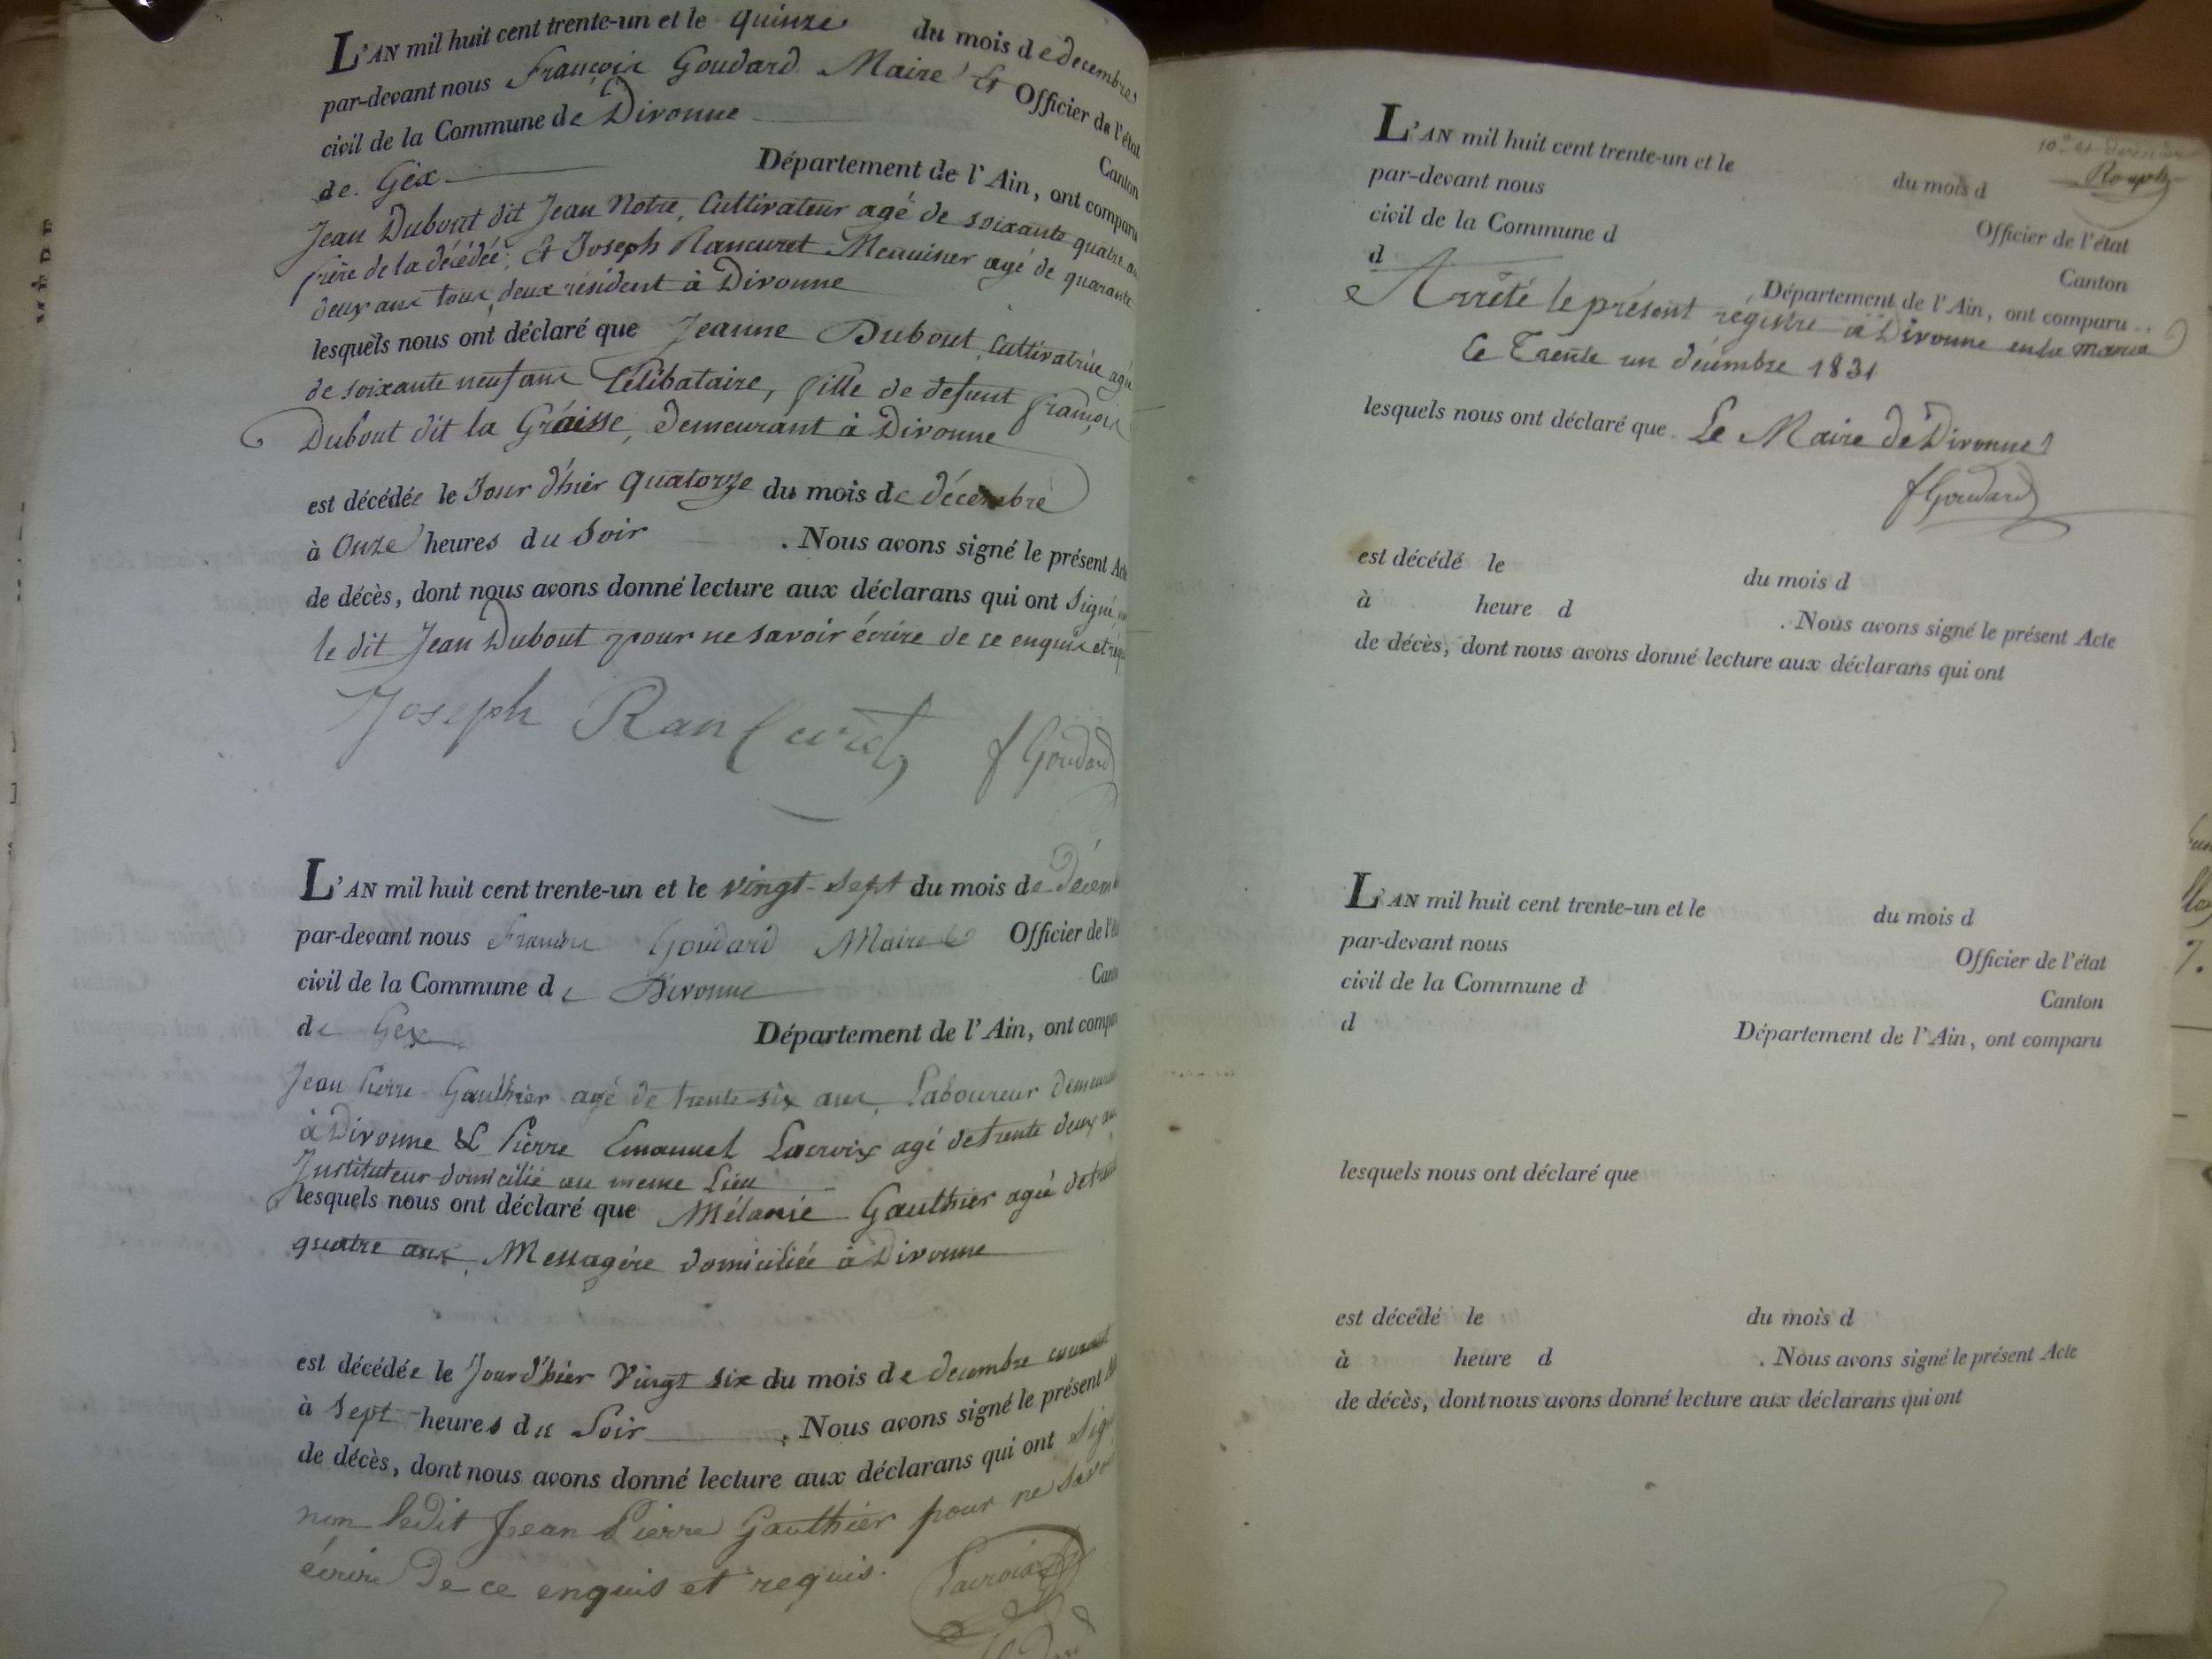 L'AN mil huit cent trente-un et le quinze du mois de decembre
par-devant nous François Goudard Maire Et Officier de l'état
civil de la Commune de Divonne Canton
de Gex Département de l'Ain, ont comparu
Jean Dubout dit Jean Notre, Cultivateur agé de soixante quatre
frère de la décédée; Et Joseph Rancuret Menuisier agé de quarante
deux ans tous deux résident à Divonne
lesquels nous ont déclaré que Jeanne Dubout Cultivatrice agée
de soixante neuf ans Célibataire, fille de defunt françois
Dubout dit la Graisse, demeurant à Divonne
est décédée le Jour d'hier quatorze du mois de décembre
à Onze heures du Soir . Nous avons signé le présent Acte
de décès, dont nous avons donné lecture aux déclarans qui ont Signé
le dit Jean Dubout pour ne savoir écrire de ce enquis et
Joseph Rancuret f Goudard
L'AN mil huit cent trente-un et le vingt-sept du mois de Décem
par-devant nous Goudard Maire Officier de l'
civil de la Commune de Divonne
de Gex Département de l'Ain, ont compa
Jean Pierre Gauthier agé de trente-six ans, Laboureur
à Divonne & Pierre Emanuel Lacroix agé de trente deux
Instituteur domicilié au meme Lieu
lesquels nous ont déclaré que Mélanie Gauthier agée de
quatre ans, Messagère domiciliée à Divonne
est décédée le Jour d'hier Vingt six du mois de decembre courant
à Sept heures du Soir . Nous avons signé le présent
de décès, dont nous avons donné lecture aux déclarans qui ont
non ledit Jean Pierre Gauthier pour ne
écrire de ce enquis et requis.
Lacroix
L'AN mil huit cent trente-un et le du mois d
par-devant nous Officier de l'état
civil de la Commune d Canton
d Département de l'Ain, ont comparu
Arrêté le présent régistre à Divonne en la
Le Trente un décembre 1831
lesquels nous ont déclaré que Le Maire de Divonne
f Goudard
est décédé le du mois d
à heure d . Nous avons signé le présent Acte
de décès, dont nous avons donné lecture aux déclarans qui ont
L'AN mil huit cent trente-un et le du mois d
par-devant nous Officier de l'état
civil de la Commune d Canton
d Département de l'Ain, ont comparu
lesquels nous ont déclaré que
est décédé le du mois d
à heure d . Nous avons signé le présent Acte
de décès, dont nous avons donné lecture aux déclarans qui ont